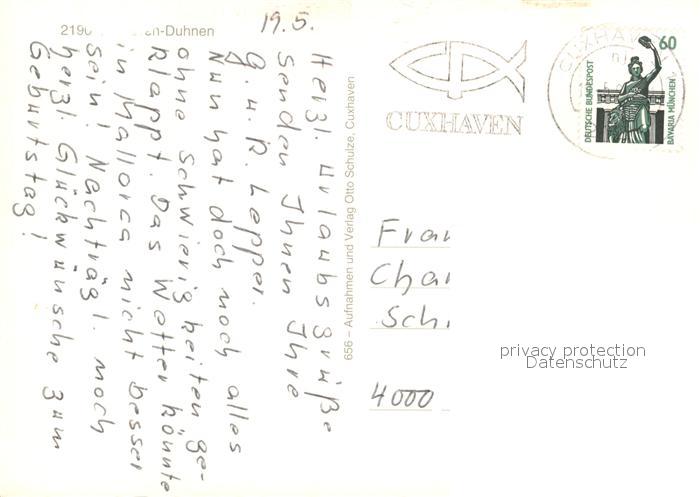 2190 en-Duhnen
19.5.
Herzl. Urlaubsgrüße
senden Ihnen Ihre
G. u. R. Lepper.
Nun hat doch noch alles
ohne Schwierigkeiten ge-
klappt. Das Wetter könnte
in Mallorca nicht besser
sein! Nachträgl. noch
herzl. Glückwünsche zum
Geburtstag!
656 – Aufnahmen und Verlag Otto Schulze, Cuxhaven
CUXHAVEN
CUXHAVEN
60
DEUTSCHE BUNDESPOST
BAVARIA MÜNCHEN
Frau
Char
Sch
4000
privacy protection
Datenschutz